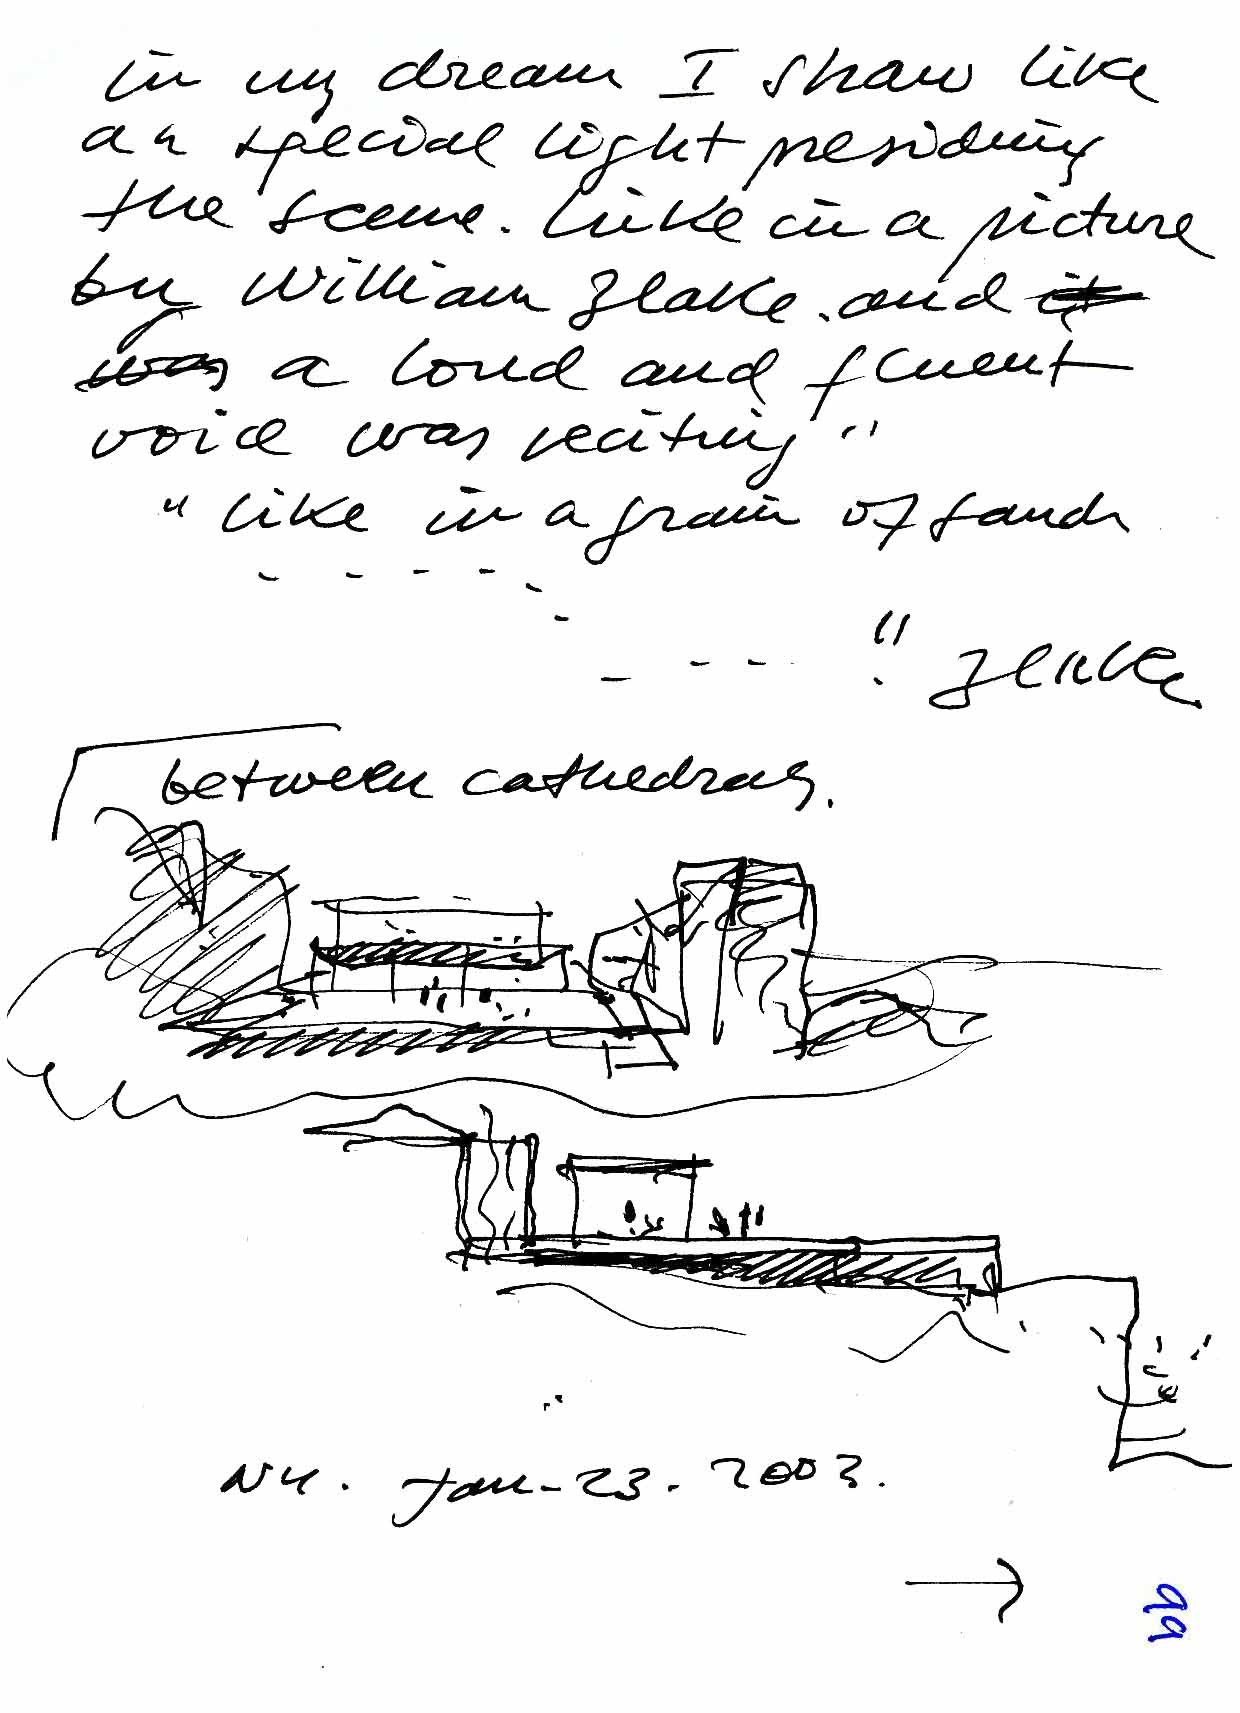 in my dream I shaw like
an special light presiding
the scene. Like in a picture
by William Blake. and it
was a loud and fluent
voice was reciting"
"like in a grain of sand
- - - - -
-
- - - ." Blake
between cathedrals.
NY. Jan-23-2003.
99